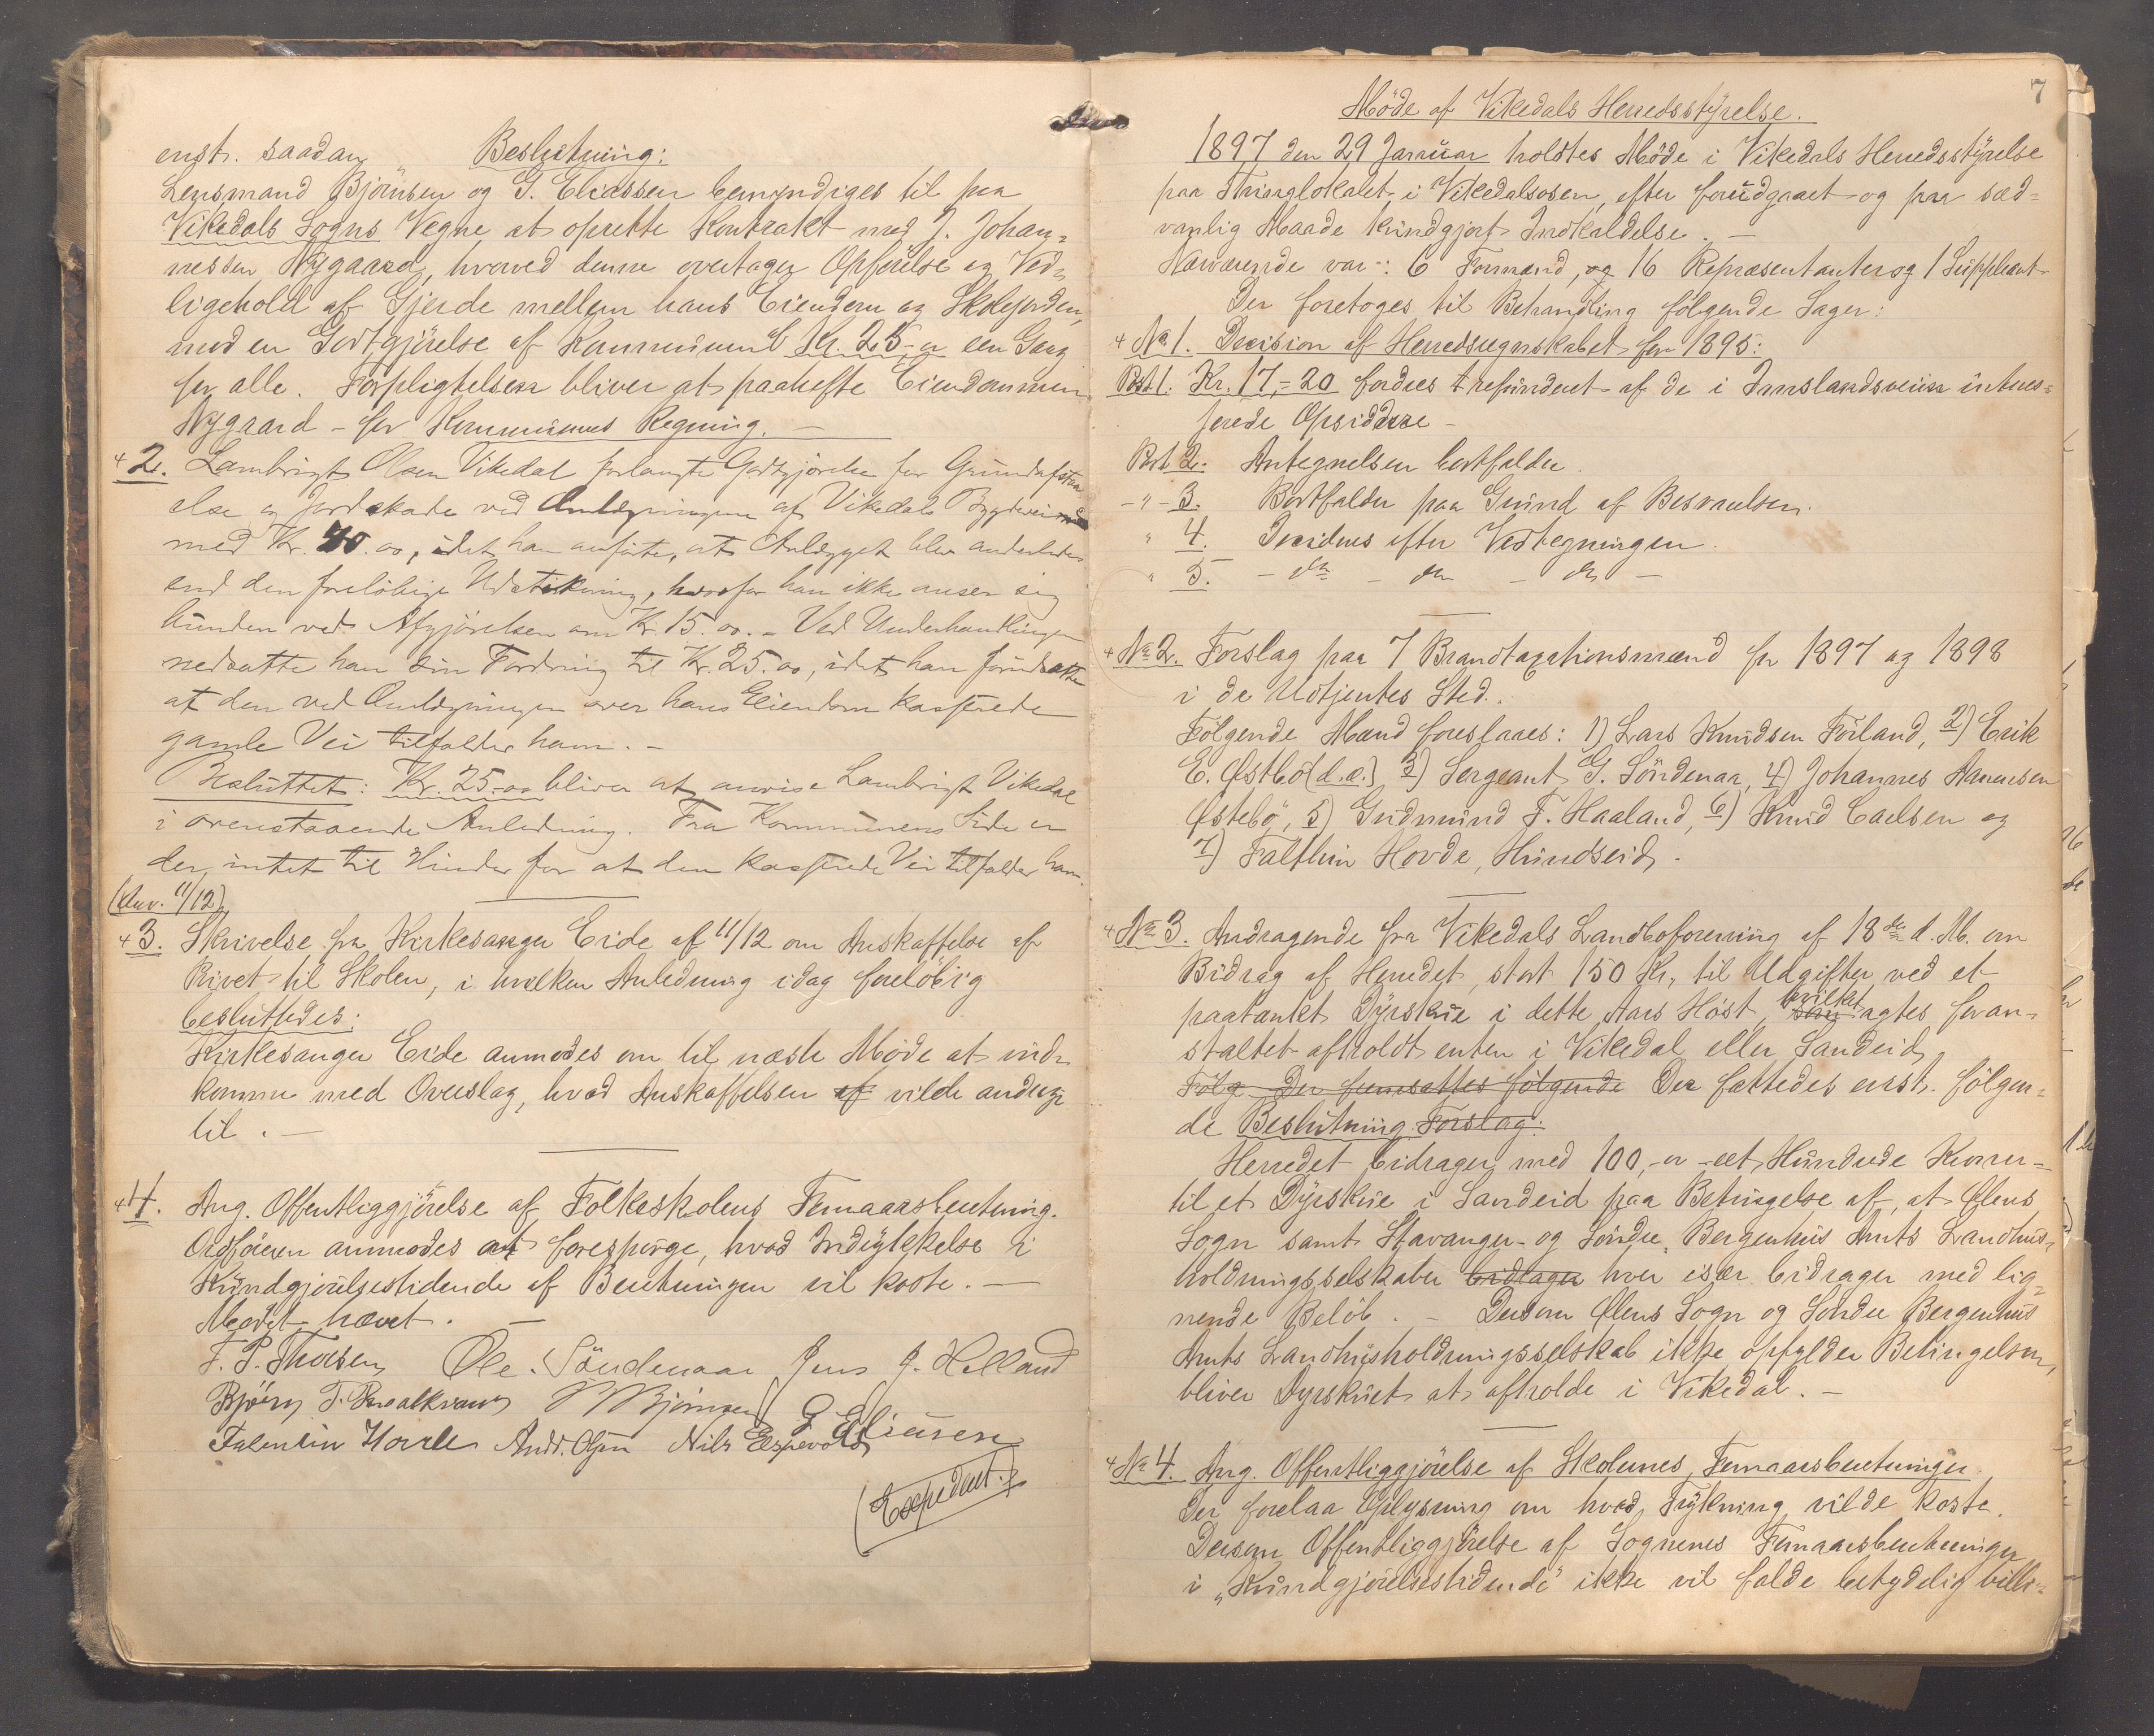 enst. saadan Beslutning:
Lensmand Bjørnsen og G. Eliassen bemyndiges til paa
Vikedals Sogns Vegne at oprette Kontrakt med J. Johan=
nessen Nygaard, hvorved denne overtager Opførelse og Ved=
ligehold af Gjerde mellem hans Eiendom og Skolejorden,
mod en Godtgjørelse af Kommunen Kr. 25 en Gang
for alle. Forpligtelsen bliver at paahefte Eiendommen
Nygaard - for Kommunens Regning. -
+ 2. Lambrigt Olsen Vikedal forlangte Godtgjørelse for Grundafstaa
else og Jordskade ved Omlægningen af Vikedals Bygdevei
med Kr. 40.00, idet han anførte, at Anlægget blev anderledes
end den foreløbige Udstikning, hvorfor han ikke anser sig
bunden ved Afgjørelsen om Kr. 15.00. - Ved Underhandlingen
nedsatte han sin Fordring til Kr. 25.00, idet han forudsatte
at den ved Omlægningen over hans Eiendom kasserede
gamle Vei tilfalder ham. -
Besluttet: Kr. 25.00 bliver at anvise Lambrigt Vikedal
i ovenstaaende Anledning. Fra Kommunens Side er
der intet til Hinder for at den kasserede Vei tilfalder ham.
(Anv. 11/12)
+ 3. Skrivelse fra Kirkesanger Eide af 11/12 om Anskaffelse af
Rivet til Skolen, i hvilken Anledning idag foreløbig
besluttedes:
Kirkesanger Eide anmodes om til næste Møde at ind=
komme med Overslag, hvad Anskaffelsen af vilde andrage
til. -
+ 4. Ang. Offentliggjørelse af Folkeskolens Femaarsberetning.
Ordføreren anmodes at forespørge, hvad Indrykkelse i
Kundgjørelsestidende af Beretningen vil koste. -
Mødet hævet. -
T. P. Thorsen Ole Søndenaa Jens J. Helland
Bjørn T. Bjørnsen G Eliasen
Falentin Hovde Andr. Olsen Nils Espevold
(Expederet.)
7
Møde af Vikedals Herredsstyrelse.
1897 den 29 Januar holdtes Møde i Vikedals Herredsstyrelse
paa Thinglokalet i Vikedalsosen, efter forudgaaet og paa sæd=
vanlig Maade kundgjort Indkaldelse. -
Nærværende var: 6 Formænd, og 16 Repræsentanter og 1 Suppleant
Der foretoges til Behandling følgende Sager:
+ No 1. Decision af Herredsregnskabet for 1895:
Post 1. Kr. 17,=20 fordres refunderet af de i Imslandsveien interes=
serede Opsiddere -
Post 2. Antegnelsen bortfalder.
- " - 3. Bortfalder paa Grund af Besvarelsen.
" 4. Decideres efter Vedtegningen.
" 5. - do - do - do -
+ No 2. Forslag paa 7 Brandtaxationsmænd for 1897 og 1898
i de Udtjentes Sted.
Følgende Mænd foreslaaes: 1) Lars Knudsen Førland, 2) Erik
E. Østbø (d.e.) 3) Sergeant G. Søndenaa, 4) Johannes Hansen
Østebø, 5) Gudmund T. Haaland, 6) Knud Carlsen og
7) Falthin Hovde, Hundseid.
+ No 3. Andragende fra Vikedals Landboforening af 18de d. M. om
Bidrag af Herredet, stort 150 Kr, til Udgifter ved et
paatænkt Dyrskue i dette Aars Høst, som hvilket agtes foran=
staltet afholdt enten i Vikedal eller Sandeid.
Følg Der fremsattes følgende Der fattedes enst. følgen=
de Beslutning Forslag:
Herredet bidrager med 100,- er - eet Hundrede Kroner -
til et Dyrskue i Sandeid paa Betingelse af, at Ølens
Sogn samt Stavanger- og Søndre Bergenhus Amts Landhus=
holdningsselskaber bidrager hver især bidrager med lig=
nende Beløb. - Dersom Ølens Sogn og Søndre Bergenhus
Amts Landhusholdningsselskab ikke opfylder Betingelsen,
bliver Dyrskuet at afholde i Vikedal. -
+ No 4. Ang. Offentliggjørelse af Skolernes Femaarsberetninger.
Der forelaa Oplysning om hvad Trykning vilde koste.
Dersom Offentliggjørelse af Sognenes Femaarsberetninger
i "Kundgjørelsestidende" ikke vil falde betydelig billi=